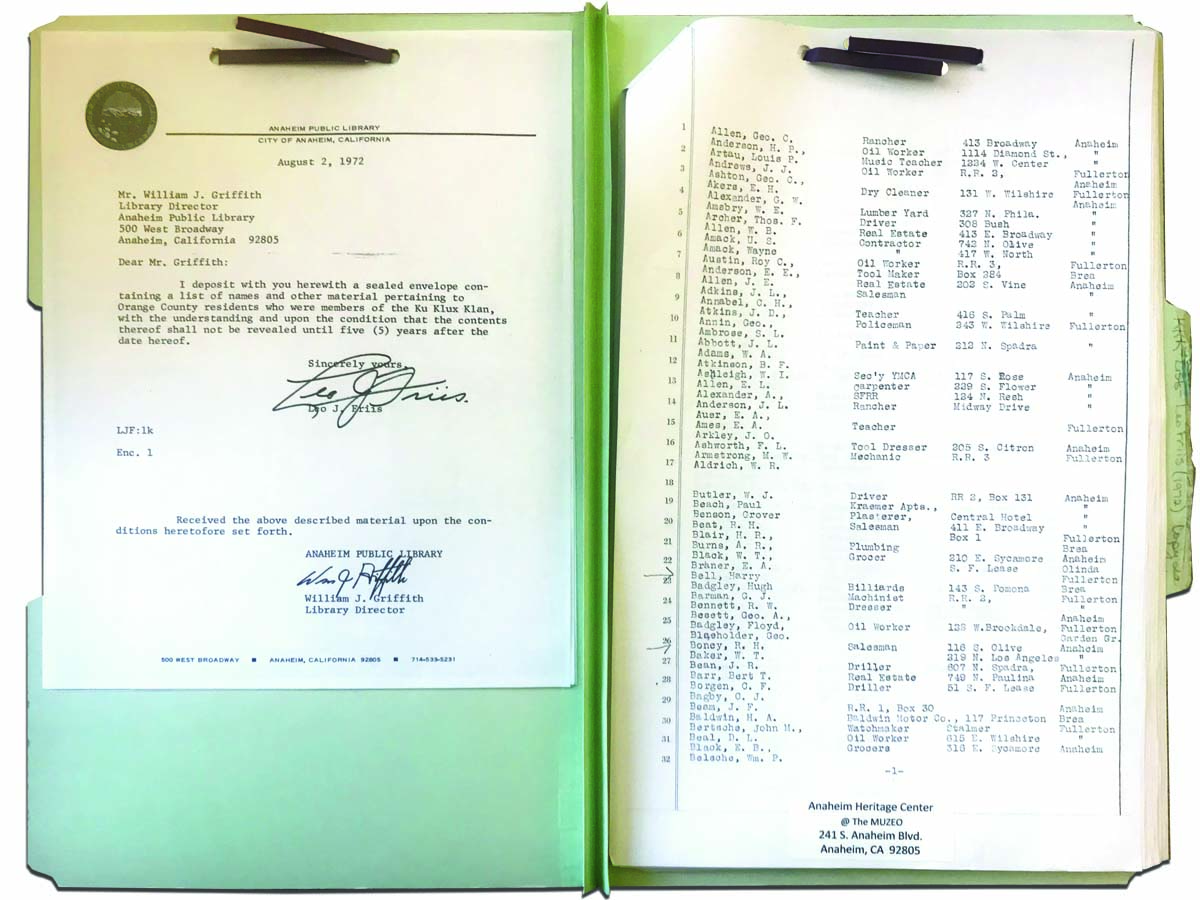 ANAHEIM PUBLIC LIBRARY
CITY OF ANAHEIM, CALIFORNIA
August 2, 1972
Mr. William J. Griffith
Library Director
Anaheim Public Library
500 West Broadway
Anaheim, California 92805
Dear Mr. Griffith:
I deposit with you herewith a sealed envelope con-
taining a list of names and other material pertaining to
Orange County residents who were members of the Ku Klux Klan,
with the understanding and upon the condition that the contents
thereof shall not be revealed until five (5) years after the
date hereof.
Sincerely yours,
Leo J. Friis.
Leo J. Friis
LJF:lk
Enc. 1
Received the above described material upon the con-
ditions heretofore set forth.
ANAHEIM PUBLIC LIBRARY
Wm J Griffith
William J. Griffith
Library Director
500 WEST BROADWAY ■ ANAHEIM, CALIFORNIA 92805 ■ 714-533-5231
1 Allen, Geo. C. Rancher 413 Broadway Anaheim
Anderson, H. P., Oil Worker 1114 Diamond St., "
2 Artau, Louis P. Music Teacher 1224 W. Center "
Andrews, J. J. Oil Worker R.R. 2, Fullerton
3 Ashton, Geo. C., Anaheim
Akers, E. H. Dry Cleaner 131 W. Wilshire Fullerton
4 Alexander, G. W. Anaheim
Amsbry, W. E. Lumber Yard 327 N. Phila. "
5 Archer, Thos. F. Driver 308 Bush "
Allen, W. B. Real Estate 413 E. Broadway "
6 Amack, U. S. Contractor 742 N. Olive "
Amack, Wayne " 417 W. North "
7 Austin, Roy C., Oil Worker R.R. 3, Fullerton
Anderson, E. E., Tool Maker Box 284 Brea
8 Allen, J. E. Real Estate 202 S. Vine Anaheim
Adkins, J. L., Salesman "
9 Annabel, C. H.,
Atkins, J. D., Teacher 416 S. Palm "
10 Annin, Geo., Policeman 243 W. Wilshire Fullerton
Ambrose, S. L.
11 Abbott, J. L. Paint & Paper 212 N. Spadra "
Adams, W. A.
12 Atkinson, B. F.
Ashleigh, W. I. Sec'y YMCA 117 S. Rose Anaheim
13 Allen, E. L. carpenter 229 S. Flower "
Alexander, A., SFRR 124 N. Resh "
14 Anderson, J. L. Rancher Midway Drive "
Auer, E. A.,
15 Ames, E. A. Teacher Fullerton
Arkley, J. O.
16 Ashworth, F. L. Tool Dresser 205 S. Citron Anaheim
Armstrong, M. W. Mechanic R.R. 3 Fullerton
17 Aldrich, W. R.
18
19 Butler, W. J. Driver RR 2, Box 131 Anaheim
Beach, Paul Kraemer Apts., "
Benson, Grover Plasterer, Central Hotel "
20 Beat, R. H. Salesman 411 E. Broadway "
Blair, H. R., Box 1 Fullerton
21 Burns, A. R., Plumbing Brea
Black, W. T., Grocer 210 E. Sycamore Anaheim
22 Braner, E. A. S. F. Lease Olinda
23 Bell, Harry Fullerton
Badgley, Hugh Billiards 143 S. Pomona Brea
24 Barman, G. J. Machinist R.R. 2, Fullerton
Bennett, R. W. Dresser " "
25 Besett, Geo. A., Anaheim
Badgley, Floyd, Oil Worker 138 W.Brookdale, Fullerton
26 Blaeholder, Geo. Garden Gr.
Boney, R. H. Salesman 116 S. Olive Anaheim
27 Baker, W. T. 319 N. Los Angeles "
Bean, J. R. Driller 607 N. Spadra, Fullerton
28 Barr, Bert T. Real Estate 749 N. Paulina Anaheim
Borgen, C. F. Driller 51 S. F. Lease Fullerton
29 Bagby, C. J.
Beem, J. F. R.R. 1, Box 30 Anaheim
30 Baldwin, H. A. Baldwin Motor Co., 117 Princeton Brea
Bertsche, John M., Watchmaker Stalmer Fullerton
31 Beal, D. L. Oil Worker 615 E. Wilshire "
Black, E. B., Grocers 316 E. Sycamore Anaheim
32 Belsche, Wm. P.
-1-
Anaheim Heritage Center
@ The MUZEO
241 S. Anaheim Blvd.
Anaheim, CA 92805